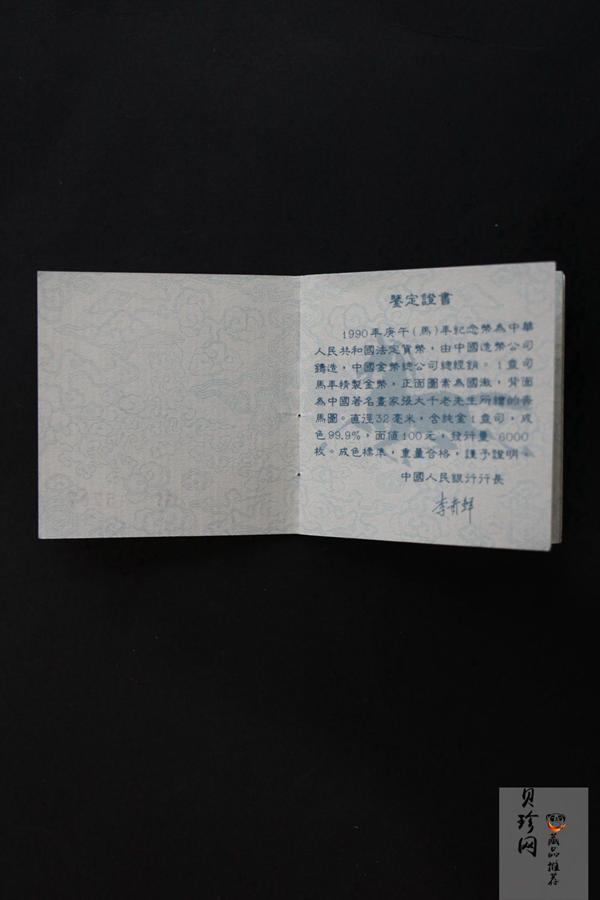 鑒定證書
1990年庚午(馬)年紀念幣為中華
人民共和國法定貨幣,由中國造幣公司
鑄造,中國金幣總公司總經銷。1盎司
馬年精製金幣,正面圖案為國徽,背面
為中國著名畫家張大千老先生所繪的奔
馬圖。直徑32毫米,含純金1盎司,成
色99.9%,面值100元,發行量 6000
枚。成色標準,重量合格,謹予證明。
中國人民銀行行長
李貴鮮
貝珍网
藏品推荐